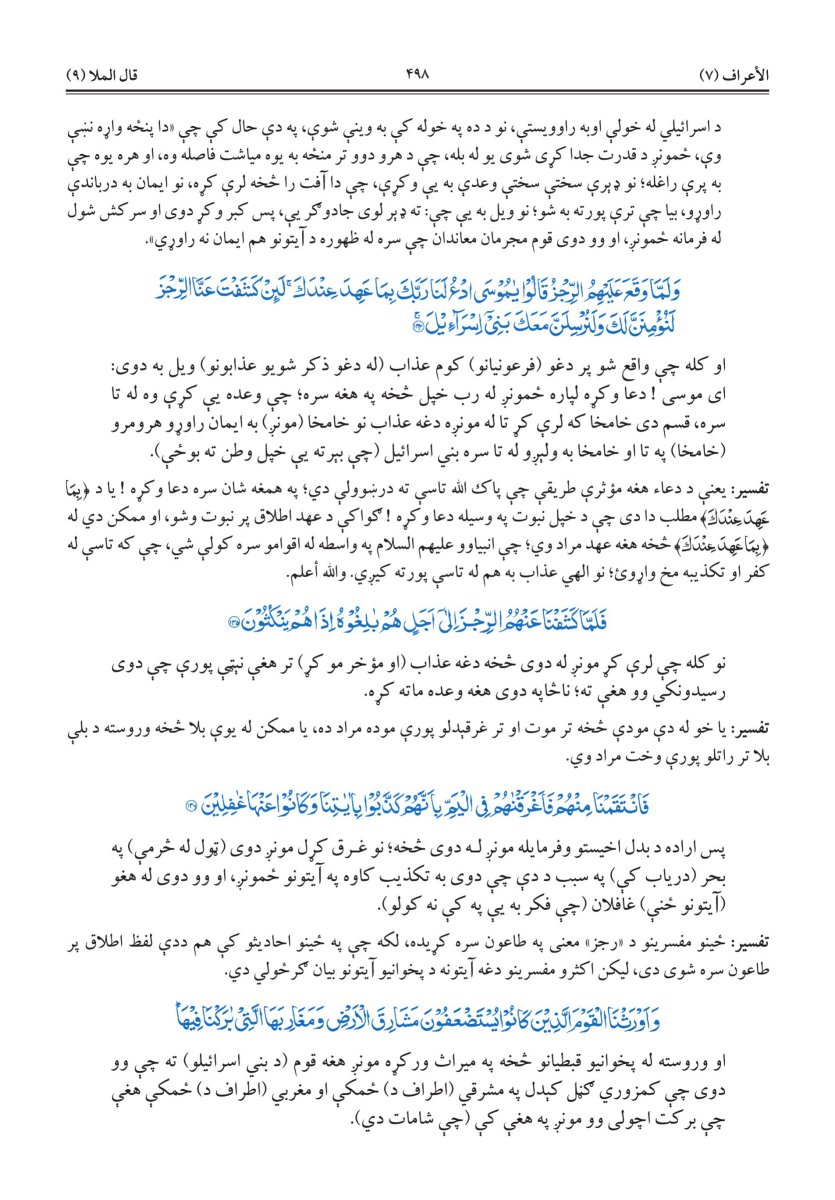 الأعراف (۷) ۴۹۸ قال الملا (۹)
د اسرائيلي له خولې اوبه راوويستې، نو د ده په خوله کې به وينې شوې، په دې حال کې چې «دا پنځه واړه نښې
وې، ځمونږ د قدرت جدا کړی شوی يو له بله، چې د هرو دوو تر منځه به يوه مياشت فاصله وه، او هره يوه چې
به پرې راغله؛ نو ډېرې سختې سختې وعدې به يې وکړې، چې دا آفت را څخه لرې کړه، نو ايمان به درباندې
راوړو، بيا چې ترې پورته به شو؛ نو ويل به يې چې: ته ډېر لوی جادوګر يې، پس کبر وکړ دوی او سرکش شول
له فرمانه ځمونږ، او وو دوی قوم مجرمان معاندان چې سره له ظهوره د آيتونو هم ايمان نه راوړي».
وَلَمَّا وَقَعَ عَلَيْهِمُ الرِّجْزُ قَالُوْا يٰمُوْسَى ادْعُ لَنَا رَبَّكَ بِمَا عَهِدَ عِنْدَكَ ۚ لَىِٕنْ كَشَفْتَ عَنَّا الرِّجْزَ
لَنُؤْمِنَنَّ لَكَ وَلَنُرْسِلَنَّ مَعَكَ بَنِيْٓ اِسْرَآءِيْلَ ۝۱۳۴
او کله چې واقع شو پر دغو (فرعونيانو) کوم عذاب (له دغو ذکر شويو عذابونو) ويل به دوی:
ای موسی ! دعا وکړه لپاره ځمونږ له رب خپل څخه په هغه سره؛ چې وعده يې کړې وه له تا
سره، قسم دی خامخا که لرې کړ تا له مونږه دغه عذاب نو خامخا (مونږ) به ايمان راوړو هرومرو
(خامخا) په تا او خامخا به ولېږو له تا سره بني اسرائيل (چې بېرته يې خپل وطن ته بوځې).
تفسير: يعنې د دعاء هغه مؤثرې طريقې چې پاک الله تاسې ته درښوولې دي؛ په همغه شان سره دعا وکړه ! يا د ﴿بِمَا
عَهِدَ عِنْدَكَ﴾ مطلب دا دی چې د خپل نبوت په وسيله دعا وکړه ! ګواکې د عهد اطلاق پر نبوت وشو، او ممکن دي له
﴿بِمَا عَهِدَ عِنْدَكَ﴾ څخه هغه عهد مراد وي؛ چې انبياوو عليهم السلام په واسطه له اقوامو سره کولې شي، چې که تاسې له
کفر او تکذيبه مخ واړوئ؛ نو الهي عذاب به هم له تاسې پورته کيږي. والله أعلم.
فَلَمَّا كَشَفْنَا عَنْهُمُ الرِّجْزَ اِلٰٓى اَجَلٍ هُمْ بٰلِغُوْهُ اِذَا هُمْ يَنْكُثُوْنَ ۝۱۳۵
نو کله چې لرې کړ مونږ له دوی څخه دغه عذاب (او مؤخر مو کړ) تر هغې نېټې پورې چې دوی
رسيدونکي وو هغې ته؛ ناڅاپه دوی هغه وعده ماته کړه.
تفسير: يا خو له دې مودې څخه تر موت او تر غرقېدلو پورې موده مراد ده، يا ممکن له يوې بلا څخه وروسته د بلې
بلا تر راتلو پورې وخت مراد وي.
فَانْتَقَمْنَا مِنْهُمْ فَاَغْرَقْنٰهُمْ فِي الْيَمِّ بِاَنَّهُمْ كَذَّبُوْا بِاٰيٰتِنَا وَكَانُوْا عَنْهَا غٰفِلِيْنَ ۝۱۳۶
پس اراده د بدل اخيستو وفرمايله مونږ لـه دوی څخه؛ نو غـرق کړل مونږ دوی (ټول له څرمې) په
بحر (درياب کې) په سبب د دې چې دوی به تکذيب کاوه په آيتونو ځمونږ، او وو دوی له هغو
(آيتونو ځنې) غافلان (چې فکر به يې په کې نه کولو).
تفسير: ځينو مفسرينو د «رجز» معنی په طاعون سره کړيده، لکه چې په ځينو احاديثو کې هم ددې لفظ اطلاق پر
طاعون سره شوی دی، ليکن اکثرو مفسرينو دغه آيتونه د پخوانيو آيتونو بيان ګرځولي دي.
وَاَوْرَثْنَا الْقَوْمَ الَّذِيْنَ كَانُوْا يُسْتَضْعَفُوْنَ مَشَارِقَ الْاَرْضِ وَمَغَارِبَهَا الَّتِيْ بٰرَكْنَا فِيْهَا ۭ
او وروسته له پخوانيو قبطيانو څخه په ميراث ورکړه مونږ هغه قوم (د بني اسرائيلو) ته چې وو
دوی چې کمزوري ګڼل کېدل په مشرقي (اطراف د) ځمکې او مغربي (اطراف د) ځمکې هغې
چې برکت اچولی وو مونږ په هغې کې (چې شامات دي).